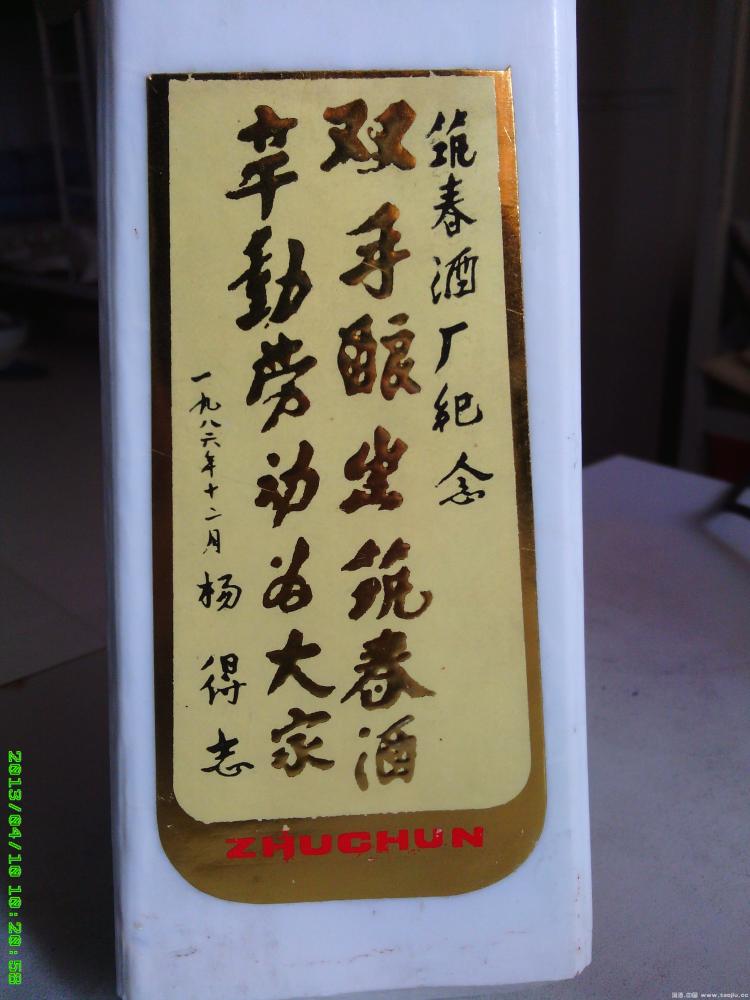 筑春酒厂纪念
双手酿出筑春酒
辛勤劳动为大家
一九八六年十二月 杨得志
ZHUCHUN
2013/04/10 10:20:58
www.taojiu.cc